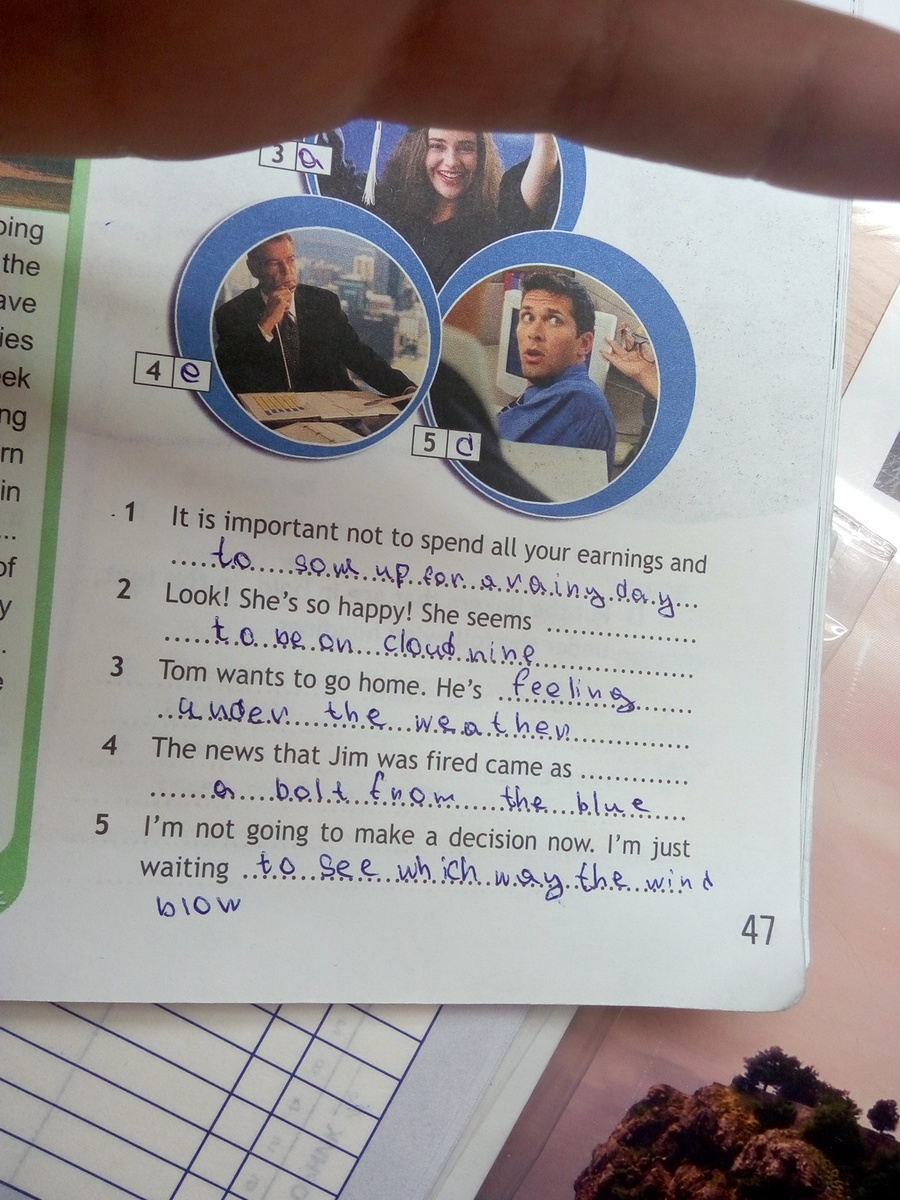 3 a
4 e
5 d
oing
the
ave
ies
eek
ng
rn
in
...
of
y
.
e
1 It is important not to spend all your earnings and
.....to som up for a rainy day...
2 Look! She's so happy! She seems ...................
.....to be on cloud nine...................
3 Tom wants to go home. He's feeling
under the weather
4 The news that Jim was fired came as .............
a bolt from the blue
5 I'm not going to make a decision now. I'm just
waiting to see which way the wind
blow
47